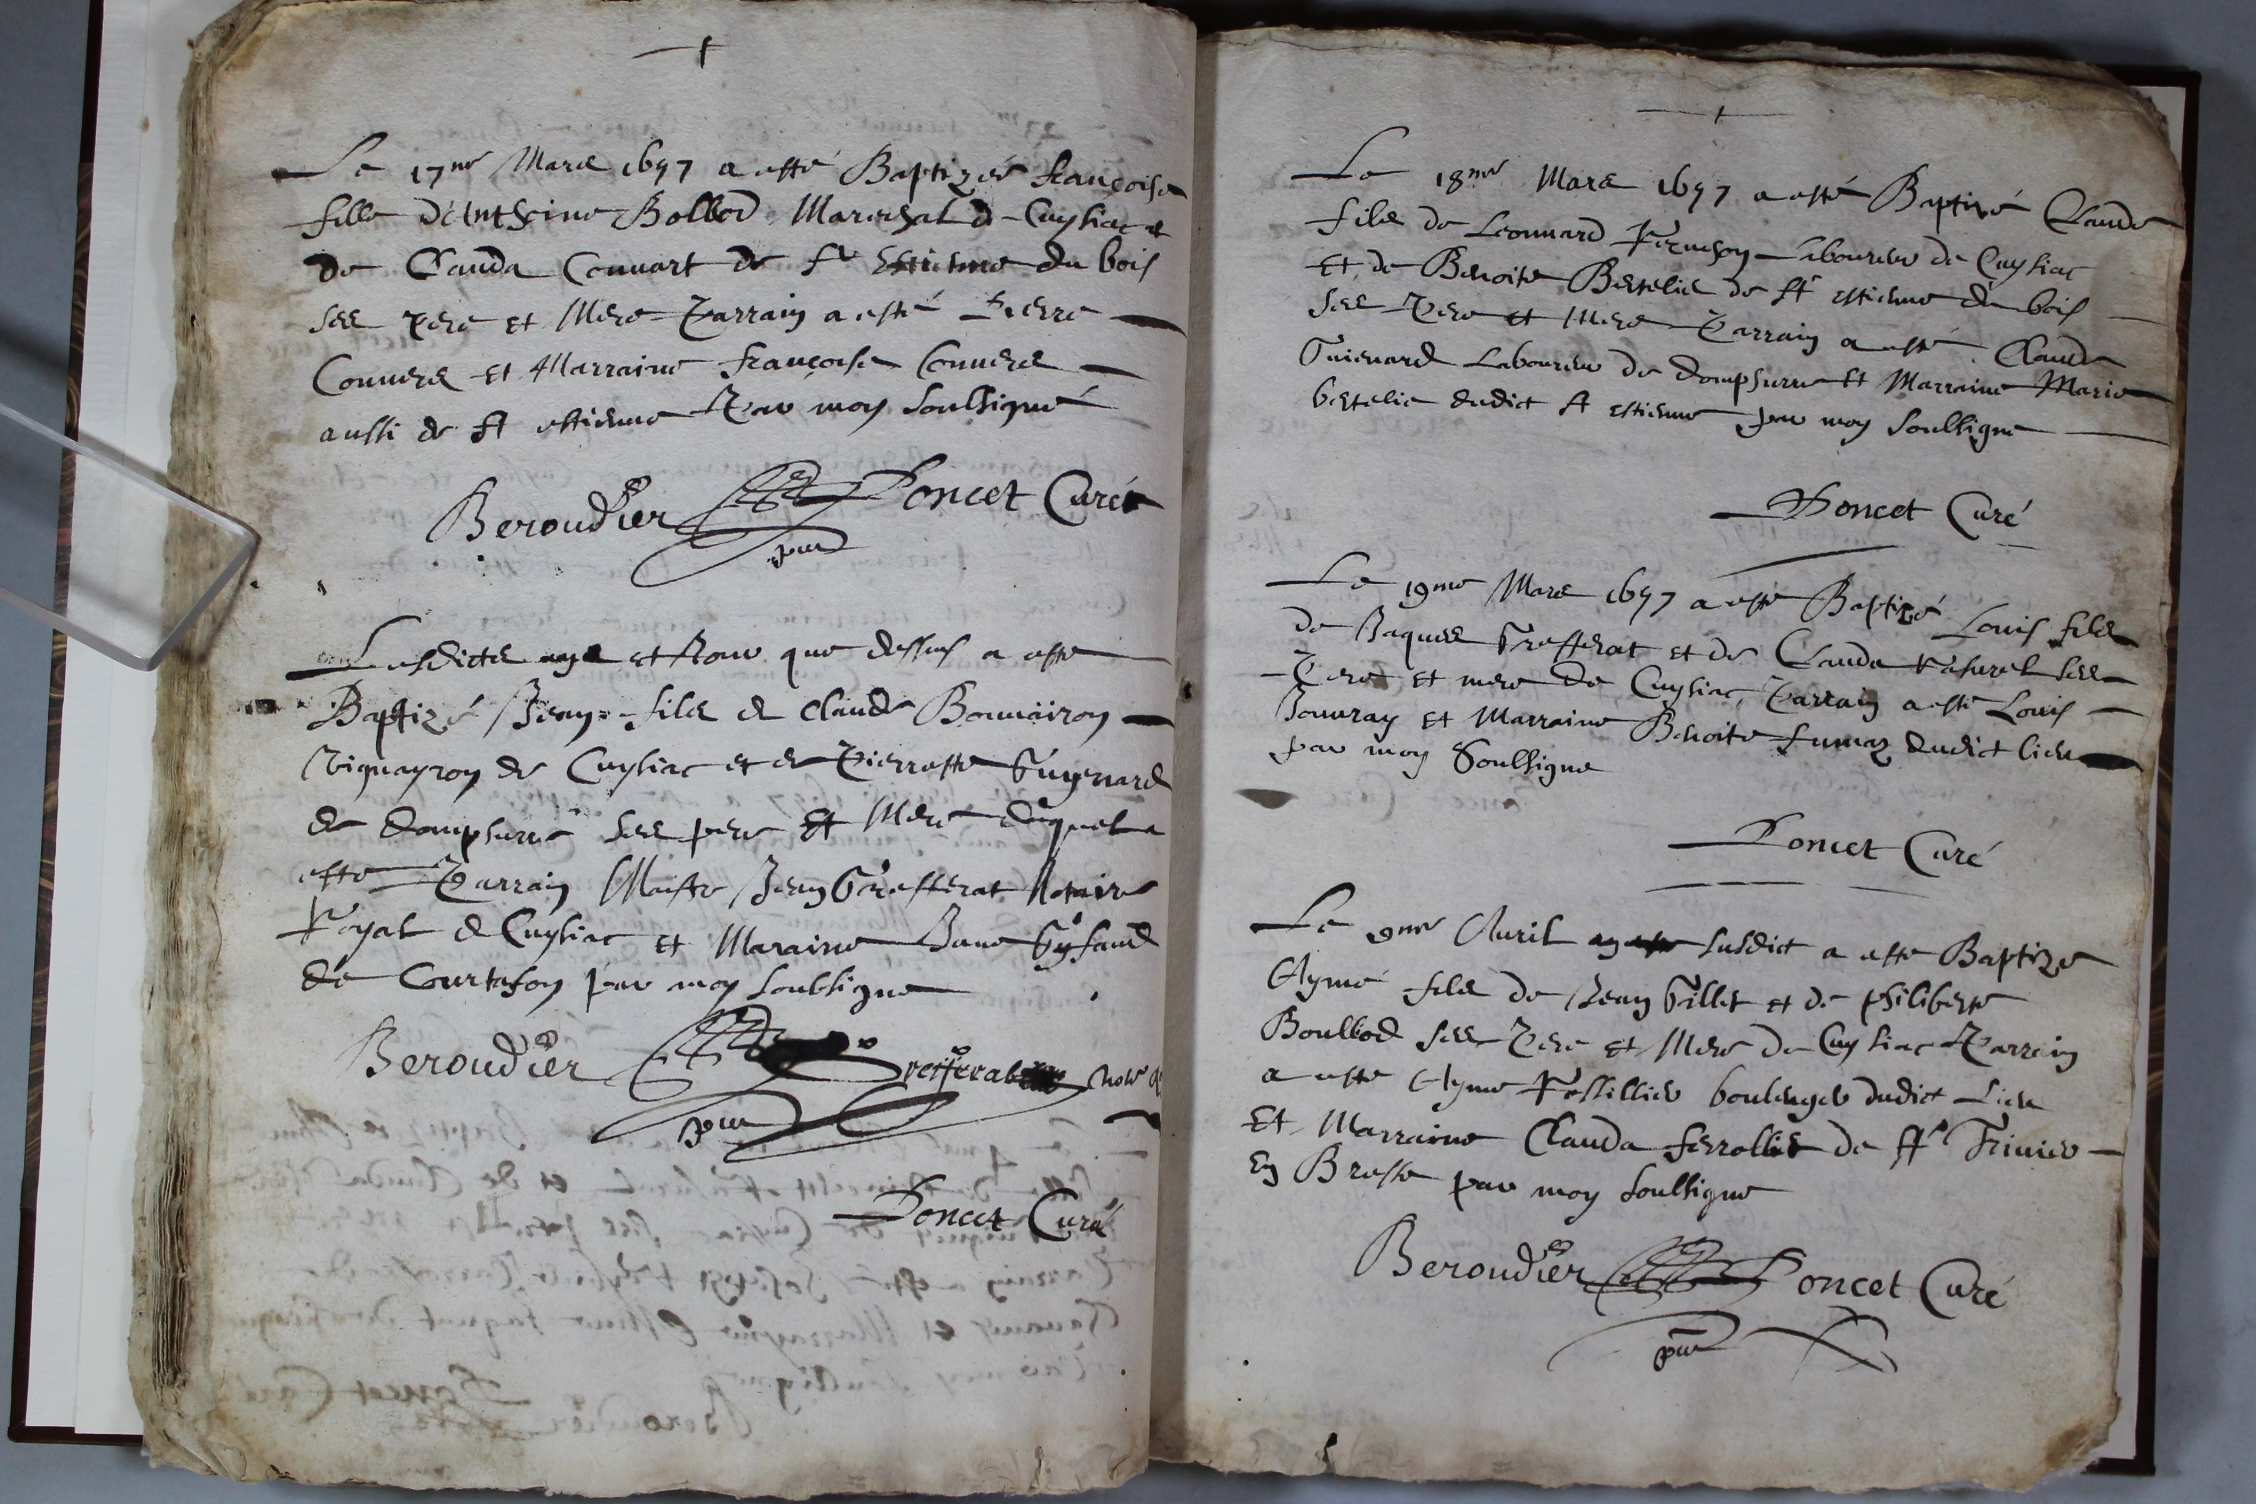 Le 17me Mars 1657 a esté Baptizée françoise
fille d'Anthoine Bolbod Mareschal de Cuysiac et
de Clauda Convart de St Estienne du bois
ses pere et Mere Parrain a esté Pierre
Convers et Marraine françoise Convers
aussi de St estienne Par moy soubsigné
Beroudier Poncet Curé
pnt
Lesdicts et Jour que dessus a esté
Baptizé Jean fils de Claude Bonnairon
Viguayron de Cuysiac et de Pierrette Guyenard
de dompsurre ses pere et Mere duquel a
esté Parrain Maistre Jean Grefferat Notaire
Royal de Cuysiac et Maraine Jane
de Courtafon par moy soubsigné
Beroudier Grefferat Notre
pnt
Poncet Curé
Le 18me Mars 1657 a esté Baptizé Claude
fils de Leonnard laboureur de Cuysiac
et de Benoite Bertelie de St estienne du bois
ses Pere et Mere Parrain a esté Claude
Guienard Laboureur de dompsurre et Marraine Marie
bertelie dudict St estienne par moy soubsigné
Poncet Curé
Le 19me Mars 1657 a esté Baptizé Louis fils
de Jaques Grefferat et de Clauda ses
Pere et mere de Cuysiac Parrain a esté Louis
Jouvray et Marraine Benoite fumaz dudict lieu
par moy Soubsigné
Poncet Curé
Le 9me Avril susdict a esté Baptizé
Aymé fils de Jean Gillet et de philiberte
Boulbod ses Pere et Mere de Cuysiac Parrain
a esté Ayme boulenger dudict Lieu
Et Marraine Clauda ferrollier de St Trivier
En Bresse par moy soubsigné
Beroudier Poncet Curé
pnt